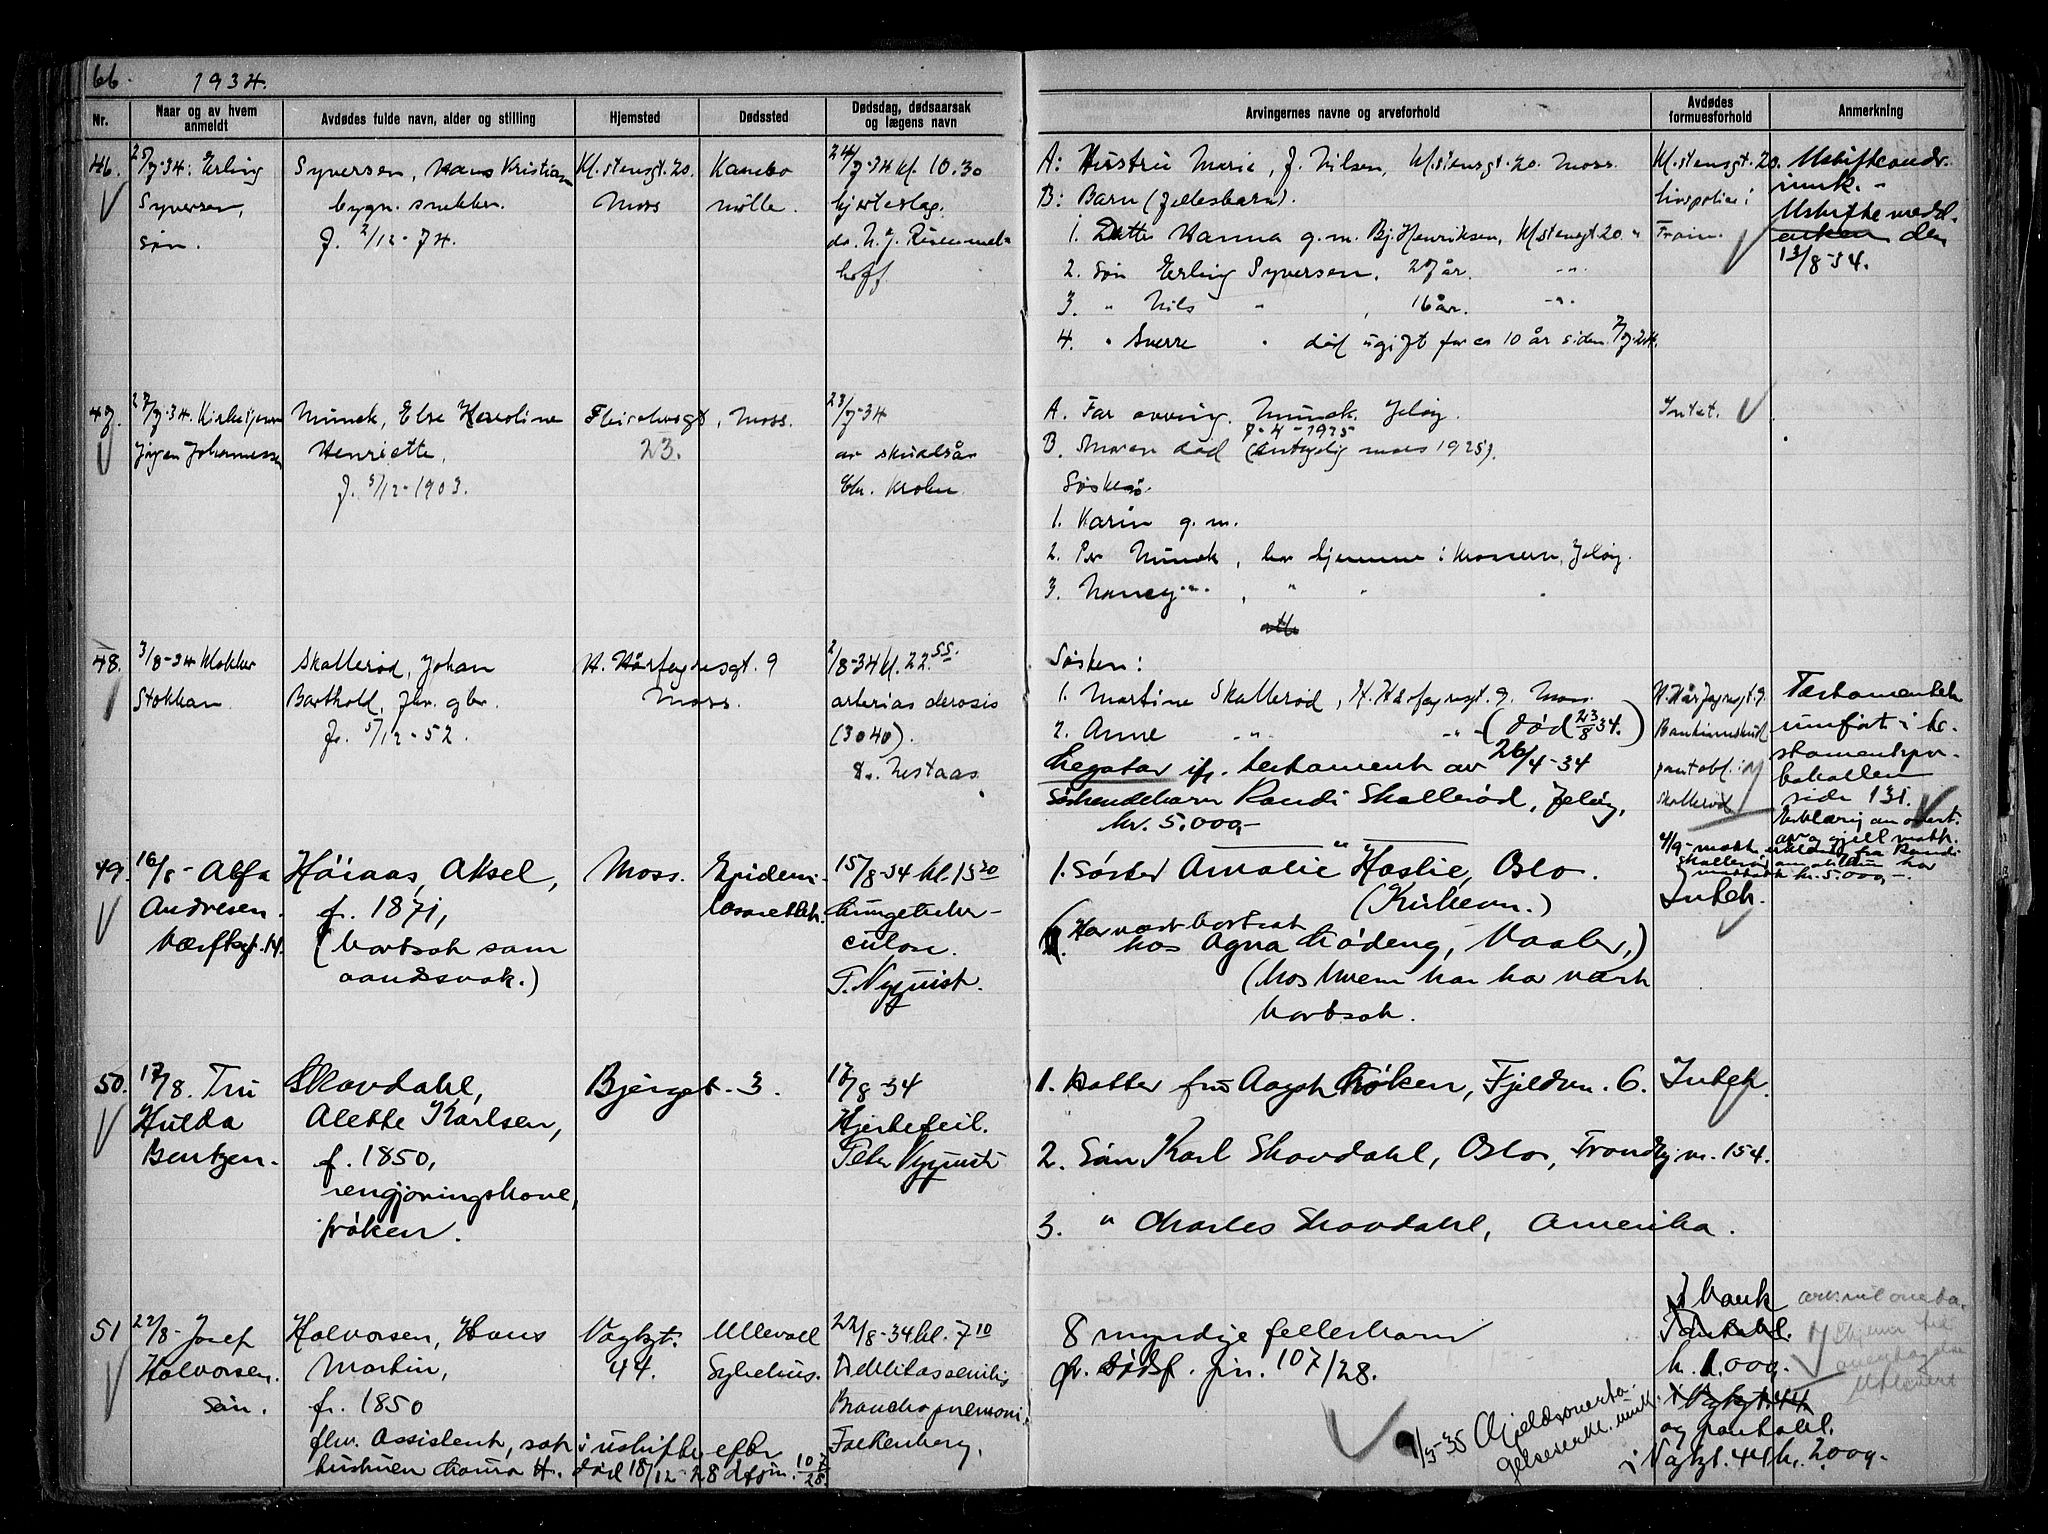 66. 1934.
Nr.
Naar og av hvem anmeldt
Avdødes fulde navn, alder og stilling
Hjemsted
Dødssted
Dødsdag, dødsaarsak og lægens navn
Arvingernes navne og arveforhold
Avdødes formuesforhold
Anmerkning
46.
25/7-34: Erling
Syversen,
søn.
Syversen, Hans Kristian
bygn. snekker.
f. 2/12-74.
Kl. stensgt. 20.
Moss
Kambo
mølle.
24/7-34 kl. 10.30
hjerteslag.
A: Hustru Marie, f. Nilsen, Kl. stensgt. 20. Moss.
B: Barn (fellesbarn).
1. Datter Hanna g.m. Bj. Henriksen, Kl. stensgt 20 "
2. Søn Erling Syversen, 27 år. -"-
3. " Nils " , 16 år. -"-
4. " Sverre " død ugift for ca 10 år siden. 7/7-24.
Kl. stensgt. 20.
livpolise i
Fram.
Uskifteandr.
innk. -
Uskifte medd.
enken den
13/8-34.
47.
27/7-34. Kirketjener
Jørgen Johannessen
Munck, Else Karoline
Henriette,
f. 5/12-1903.
23.
, Moss.
23/7-34
av skudsår
Chr. Krohn.
A. Far arving. Munck. Jeløy.
7-4-1925
B. Moren død (antagelig mars 1925).
Søsken
1. Karin g.m.
2. Per Munck, bor hjemme i Krossern, Jeløy.
3. Nancy -"- , " " "
Intet.
48.
3/8-34 Klokker
Stokkan.
Skallerød, Johan
Barthold, fhv. gbr.
f. 5/12-52.
H. Hårfagresgt. 9
Moss.
2/8-34 kl. 22.55.
arteriosclerosis
(3040).
dr. Nestaas.
Søsken:
1. Martine Skallerød, H. Hårfagresgt. 9. Moss.
2. Anne -"- -"- (død 23/8 34.)
Legatar ifg. testament av 26/4-34
Søskendebarn Randi Skallerød, Jeløy,
kr. 5.000,-
H. Hårfagresgt. 9.
pantobl. i
Skallerød
Testamentet
innført i te-
stamentspro-
tokollen
side 131.
49.
16/8- Alfa
Andresen.
Værftsgt. 14.
Høiaas, Aksel,
f. 1871,
(bortsat som
aandssvak.)
Moss.
Epidemi-
lasarettet.
15/8-34 kl. 15 30
Lungetuber-
culose.
T. Nyquist.
1. Søster Amalie Haslie, Oslo.
(Kirkevn.)
(Har vært bortsat
hos Agna Lødeng, Vaaler,)
(hos hvem han har vært
bortsat.
Intet.
50.
17/8. Fru
Hulda
Bentzen.
Skovdahl,
Alette Karlsen,
f. 1850,
rengjøringskone,
frøken.
Bjerget. 3.
17/8-34
Hjertefeil.
Peter Nyquist
1. Datter fru Aagot Løken, Fjeldvn. 6.
2. Søn Karl Skovdahl, Oslo, Trondhj.vn. 154.
3. " Charles Skovdahl, Amerika.
Intet.
51
22/8- Josef
Halvorsen.
Søn.
Halvorsen, Hans
Martin,
f. 1850
fhv. Assistent, sat i uskifte efter
hustruen Laura H. død 18/12-28 dfjrn. 107/28
Vogtsgt.
44.
Ullevaal
Sykehus.
22/8-34 kl. 7 10
Debilitas senilis
Bronchopneumoni.
Falkenberg.
8 myndige fellesbarn
cfr. Dødsf. jrn. 107/28.
9/3-35 Gjeldsoverta-
gelseserkl. innk.
I bank
Pantobl.
kr. 1.000,-
i Vogtsgt. 44
og pantobl.
i Vogtsgt. 44 kr. 2000.-